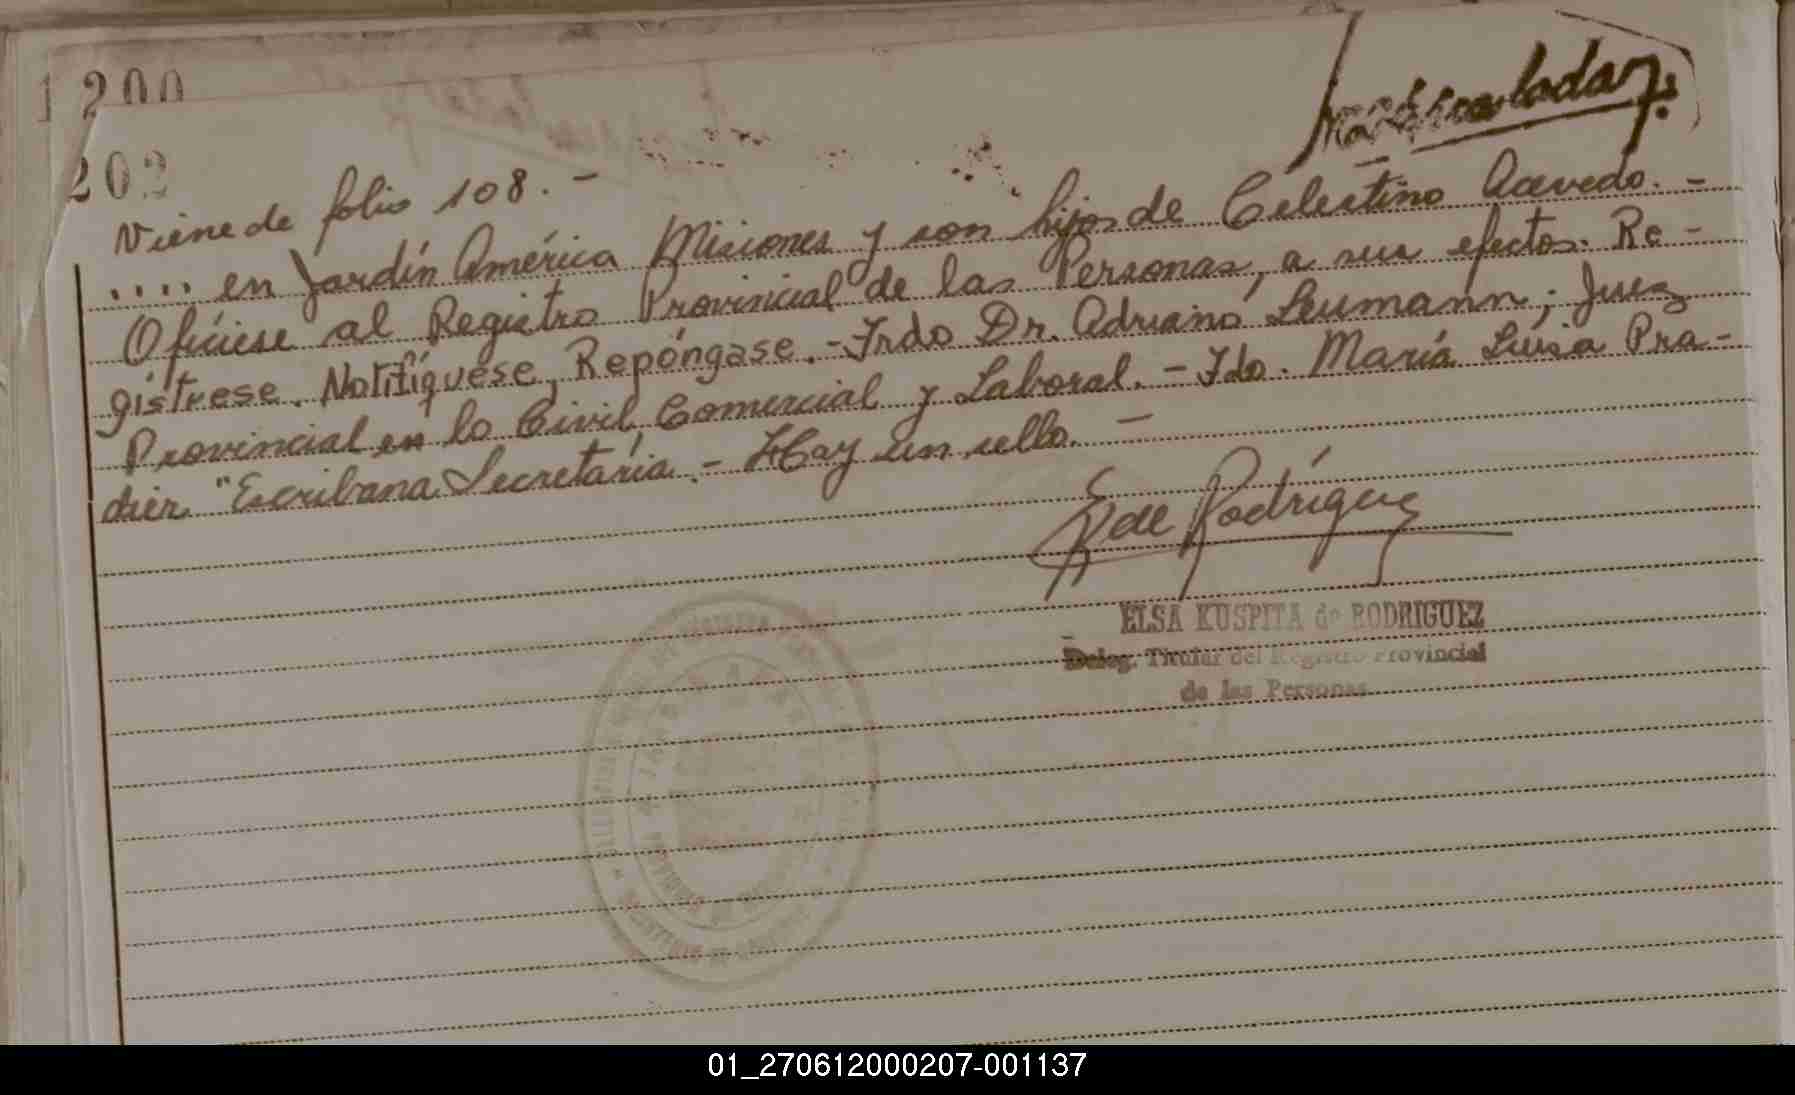 1 200
202
Viene de folio 108. -
.... en Jardín América Misiones y son hijos de Celestino Acevedo. -
Ofíciese al Registro Provincial de las Personas, a sus efectos. Re -
gístrese. Notifíquese, Repóngase. - Frdo Dr. Adriano Leumann; Juez
Provincial en lo Civil, Comercial y Laboral. - Fdo. María Luisa Pra -
dier "Escribana Secretaria. - Hay un sello. -
E de Rodríguez
ELSA KUSPITA de RODRIGUEZ
Deleg. Titular del Registro Provincial
de las Personas
01_270612000207-001137